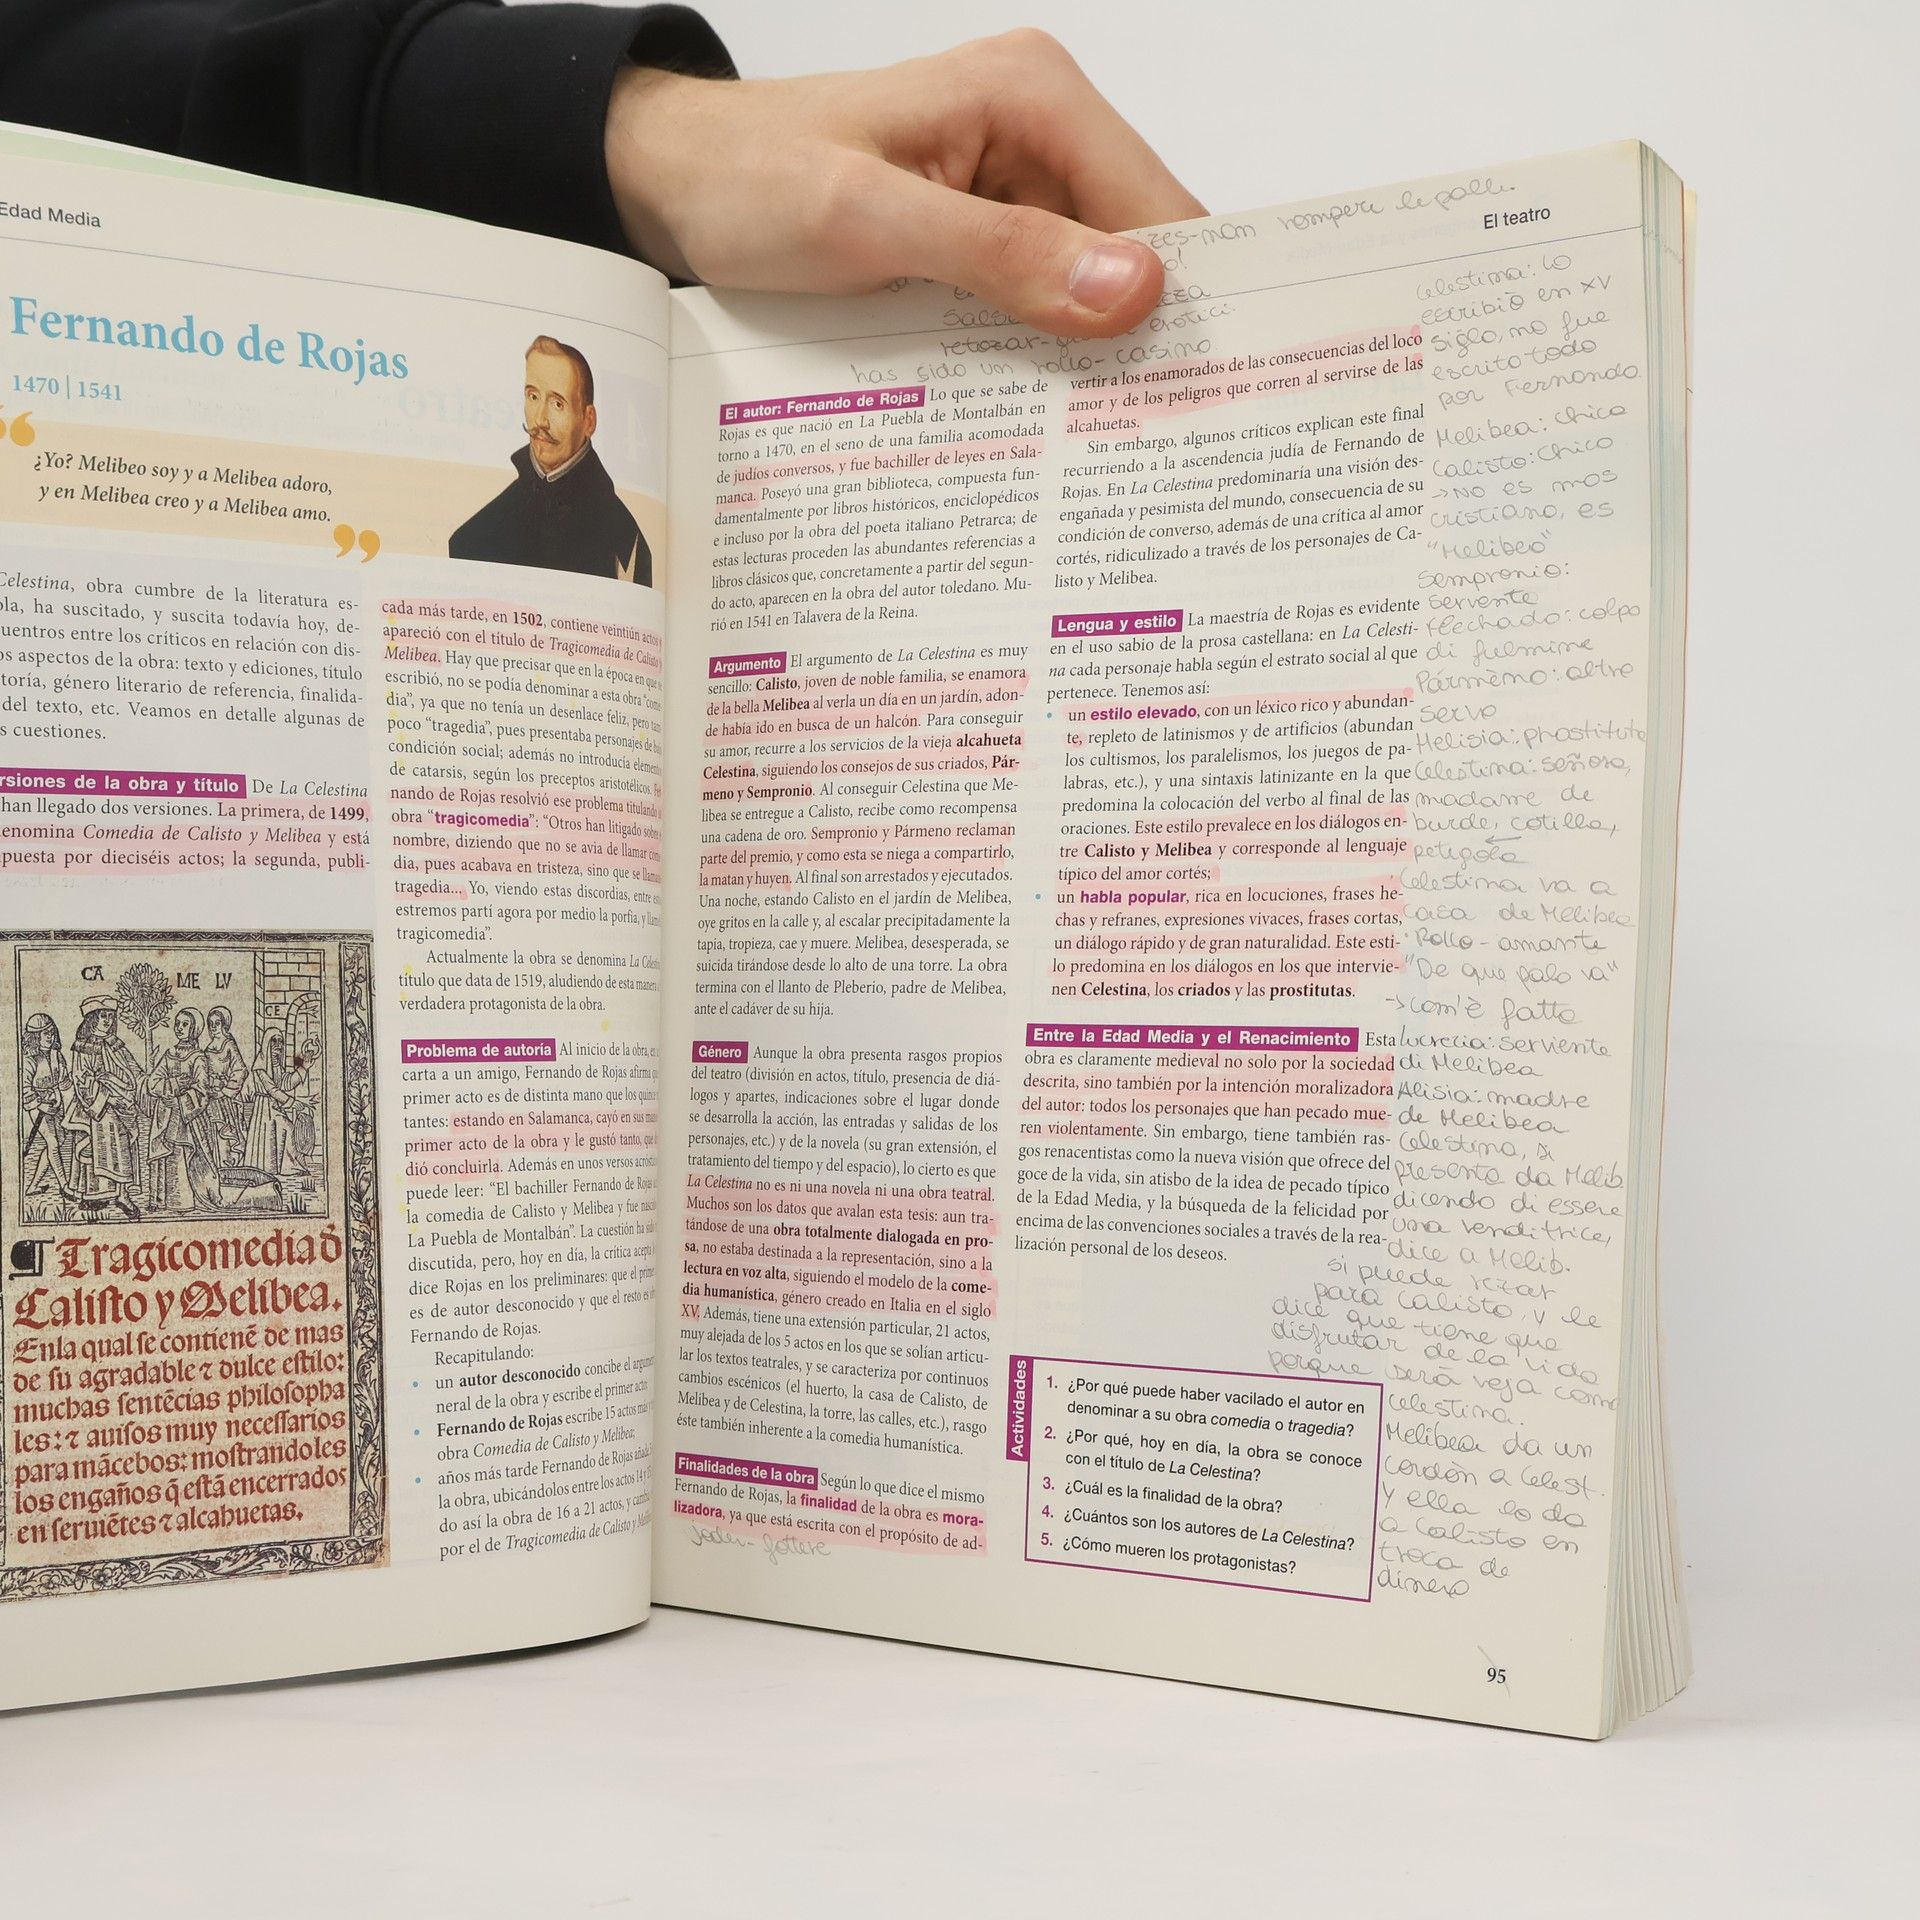 Edad Media
Fernando de Rojas
1470 | 1541
“
¿Yo? Melibeo soy y a Melibea adoro,
y en Melibea creo y a Melibea amo.
”
Celestina, obra cumbre de la literatura es-
ola, ha suscitado, y suscita todavía hoy, de-
uentros entre los críticos en relación con dis-
os aspectos de la obra: texto y ediciones, título
toría, género literario de referencia, finalida-
del texto, etc. Veamos en detalle algunas de
s cuestiones.
rsiones de la obra y título De La Celestina
han llegado dos versiones. La primera, de 1499,
enomina Comedia de Calisto y Melibea y está
puesta por dieciséis actos; la segunda, publi-
CA ME LV
CE
Tragicomedia đ
Calisto y Melibea.
En la qual se contienē de mas
de su agradable ⁊ dulce estilo:
muchas sentēcias philosopha
les: ⁊ auisos muy necessarios
para mācebos: mostrandoles
los engaños q̄ estā encerrados
en seruiētes ⁊ alcahuetas.
cada más tarde, en 1502, contiene veintiún actos y
apareció con el título de Tragicomedia de Calisto y
Melibea. Hay que precisar que en la época en que se
escribió, no se podía denominar a esta obra “come-
dia”, ya que no tenía un desenlace feliz, pero tam-
poco “tragedia”, pues presentaba personajes de baja
condición social; además no introducía elemen
de catarsis, según los preceptos aristotélicos. Fer-
nando de Rojas resolvió ese problema titulando
obra “tragicomedia”: “Otros han litigado sobre
nombre, diziendo que no se avia de llamar com
dia, pues acabava en tristeza, sino que se llam
tragedia... Yo, viendo estas discordias, entre es
estremos partí agora por medio la porfía, y llam
tragicomedia”.
Actualmente la obra se denomina La Celes
título que data de 1519, aludiendo de esta manera
verdadera protagonista de la obra.
Problema de autoría Al inicio de la obra, en
carta a un amigo, Fernando de Rojas afirma que
primer acto es de distinta mano que los quince
tantes: estando en Salamanca, cayó en sus manos
primer acto de la obra y le gustó tanto, que
dió concluirla. Además en unos versos acrósti
puede leer: “El bachiller Fernando de Rojas
la comedia de Calisto y Melibea y fue nasc
La Puebla de Montalbán”. La cuestión ha sido
discutida, pero, hoy en día, la crítica acepta
dice Rojas en los preliminares: que el prime
es de autor desconocido y que el resto es
Fernando de Rojas.
Recapitulando:
• un autor desconocido concibe el argum
neral de la obra y escribe el primer acto;
• Fernando de Rojas escribe 15 actos más
obra Comedia de Calisto y Melibea;
• años más tarde Fernando de Rojas añade
la obra, ubicándolos entre los actos 14 y 15
do así la obra de 16 a 21 actos, y camb
por el de Tragicomedia de Calisto y Meli
rompere le palle
El teatro
erotici.
retozar-
has sido un rollo - casino
El autor: Fernando de Rojas Lo que se sabe de
Rojas es que nació en La Puebla de Montalbán en
torno a 1470, en el seno de una familia acomodada
de judíos conversos, y fue bachiller de leyes en Sala-
manca. Poseyó una gran biblioteca, compuesta fun-
damentalmente por libros históricos, enciclopédicos
e incluso por la obra del poeta italiano Petrarca; de
estas lecturas proceden las abundantes referencias a
libros clásicos que, concretamente a partir del segun-
do acto, aparecen en la obra del autor toledano. Mu-
rió en 1541 en Talavera de la Reina.
Argumento El argumento de La Celestina es muy
sencillo: Calisto, joven de noble familia, se enamora
de la bella Melibea al verla un día en un jardín, adon-
de había ido en busca de un halcón. Para conseguir
su amor, recurre a los servicios de la vieja alcahueta
Celestina, siguiendo los consejos de sus criados, Pár-
meno y Sempronio. Al conseguir Celestina que Me-
libea se entregue a Calisto, recibe como recompensa
una cadena de oro. Sempronio y Pármeno reclaman
parte del premio, y como esta se niega a compartirlo,
la matan y huyen. Al final son arrestados y ejecutados.
Una noche, estando Calisto en el jardín de Melibea,
oye gritos en la calle y, al escalar precipitadamente la
tapia, tropieza, cae y muere. Melibea, desesperada, se
suicida tirándose desde lo alto de una torre. La obra
termina con el llanto de Pleberio, padre de Melibea,
ante el cadáver de su hija.
Género Aunque la obra presenta rasgos propios
del teatro (división en actos, título, presencia de diá-
logos y apartes, indicaciones sobre el lugar donde
se desarrolla la acción, las entradas y salidas de los
personajes, etc.) y de la novela (su gran extensión, el
tratamiento del tiempo y del espacio), lo cierto es que
La Celestina no es ni una novela ni una obra teatral.
Muchos son los datos que avalan esta tesis: aun tra-
tándose de una obra totalmente dialogada en pro-
sa, no estaba destinada a la representación, sino a la
lectura en voz alta, siguiendo el modelo de la come-
dia humanística, género creado en Italia en el siglo
XV. Además, tiene una extensión particular, 21 actos,
muy alejada de los 5 actos en los que se solían articu-
lar los textos teatrales, y se caracteriza por continuos
cambios escénicos (el huerto, la casa de Calisto, de
Melibea y de Celestina, la torre, las calles, etc.), rasgo
éste también inherente a la comedia humanística.
Finalidades de la obra Según lo que dice el mismo
Fernando de Rojas, la finalidad de la obra es mora-
lizadora, ya que está escrita con el propósito de ad-
Joder - fottere
vertir a los enamorados de las consecuencias del loco
amor y de los peligros que corren al servirse de las
alcahuetas.
Sin embargo, algunos críticos explican este final
recurriendo a la ascendencia judía de Fernando de
Rojas. En La Celestina predominaría una visión des-
engañada y pesimista del mundo, consecuencia de su
condición de converso, además de una crítica al amor
cortés, ridiculizado a través de los personajes de Ca-
listo y Melibea.
Lengua y estilo La maestría de Rojas es evidente
en el uso sabio de la prosa castellana: en La Celesti-
na cada personaje habla según el estrato social al que
pertenece. Tenemos así:
• un estilo elevado, con un léxico rico y abundan-
te, repleto de latinismos y de artificios (abundan
los cultismos, los paralelismos, los juegos de pa-
labras, etc.), y una sintaxis latinizante en la que
predomina la colocación del verbo al final de las
oraciones. Este estilo prevalece en los diálogos en-
tre Calisto y Melibea y corresponde al lenguaje
típico del amor cortés;
• un habla popular, rica en locuciones, frases he-
chas y refranes, expresiones vivaces, frases cortas,
un diálogo rápido y de gran naturalidad. Este esti-
lo predomina en los diálogos en los que intervie-
nen Celestina, los criados y las prostitutas.
Entre la Edad Media y el Renacimiento Esta
obra es claramente medieval no solo por la sociedad
descrita, sino también por la intención moralizadora
del autor: todos los personajes que han pecado mue-
ren violentamente. Sin embargo, tiene también ras-
gos renacentistas como la nueva visión que ofrece del
goce de la vida, sin atisbo de la idea de pecado típico
de la Edad Media, y la búsqueda de la felicidad por
encima de las convenciones sociales a través de la rea-
lización personal de los deseos.
Actividades
1. ¿Por qué puede haber vacilado el autor en
denominar a su obra comedia o tragedia?
2. ¿Por qué, hoy en día, la obra se conoce
con el título de La Celestina?
3. ¿Cuál es la finalidad de la obra?
4. ¿Cuántos son los autores de La Celestina?
5. ¿Cómo mueren los protagonistas?
Celestina: lo
escribiò en XV
siglo, no fue
escrito todo
por Fernando.
Melibea: chica
Calisto: chico
→ No es mas
cristiano, es
"Melibeo"
Sempronio:
servente
flechado: colpo
di fulmine
Pármeno: altro
servo
Helisia: prostituta
Celestina: señora,
madame de
burde, cotilla,
petegola
Celestina va a
casa de Melibea
Rollo - amante
"De que palo va"
→ com'è fatto
Lucrecia: serviente
di Melibea
Alisia: madre
de Melibea
Celestina, si
presenta da Melib.
dicendo di essere
una venditrice,
dice a Melib.
si puede rezar
para Calisto, y le
dice que tiene que
disfrutar de la vida
porque serà veja como
Celestina.
Melibea da un
cordòn a Celest.
y ella lo da
a Calisto en
troca de
dinero
95